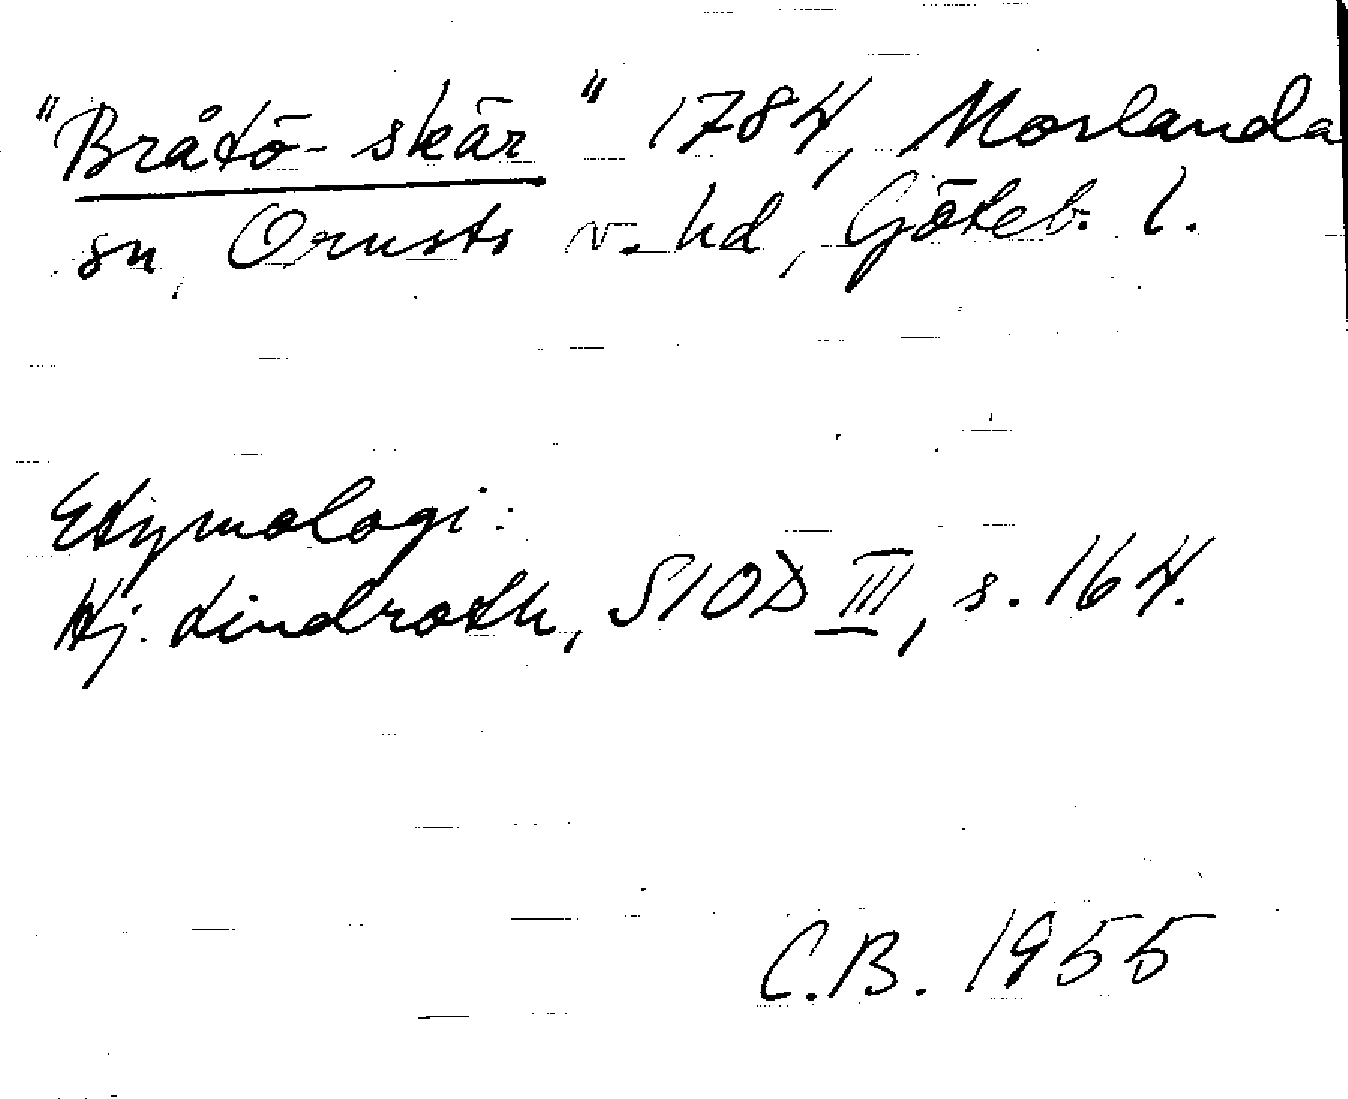 "Bråtö-skär" 1784, Morlanda
sn, Orusts v. hd, Göteb. l.
Etymologi:
Hj. Lindroth, SIOD III, s. 164.
C.B. 1955